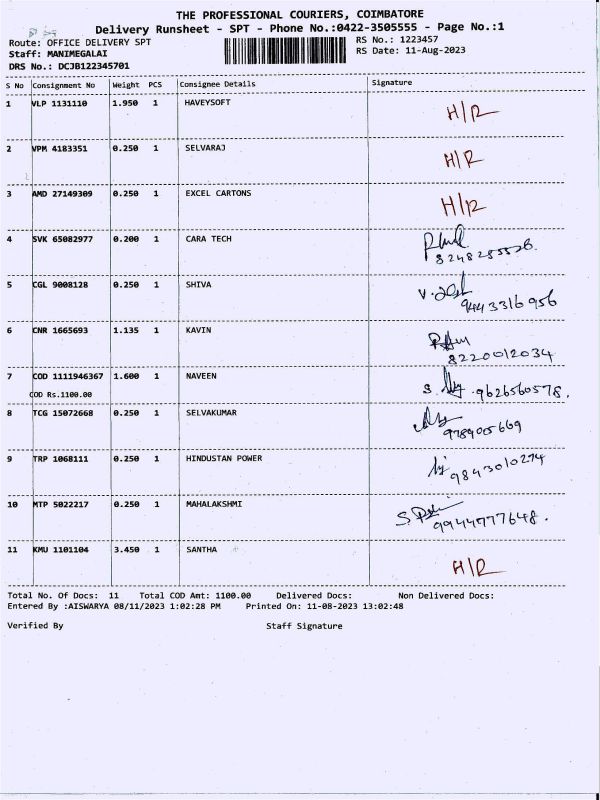 THE PROFESSIONAL COURIERS, COIMBATORE
Delivery Runsheet - SPT - Phone No.:0422-3505555 - Page No.:1
Route: OFFICE DELIVERY SPT RS No.: 1223457
Staff: MANIMEGALAI RS Date: 11-Aug-2023
DRS No.: DCJB122345701
S No Consignment No Weight PCS Consignee Details Signature
1 VLP 1131110 1.950 1 HAVEYSOFT H/R
2 VPM 4183351 0.250 1 SELVARAJ H/R
3 AMD 27149309 0.250 1 EXCEL CARTONS H/R
4 SVK 65082977 0.200 1 CARA TECH
5 CGL 9008128 0.250 1 SHIVA
9443316956
6 CNR 1665693 1.135 1 KAVIN
8220012034
7 COD 1111946367 1.600 1 NAVEEN S. 9626560578.
COD Rs.1100.00
8 TCG 15072668 0.250 1 SELVAKUMAR
9789005669
9 TRP 1068111 0.250 1 HINDUSTAN POWER
9843010274
10 MTP 5022217 0.250 1 MAHALAKSHMI
9944777648.
11 KMU 1101104 3.450 1 SANTHA H/R
Total No. Of Docs: 11 Total COD Amt: 1100.00 Delivered Docs: Non Delivered Docs:
Entered By :AISWARYA 08/11/2023 1:02:28 PM Printed On: 11-08-2023 13:02:48
Verified By Staff Signature